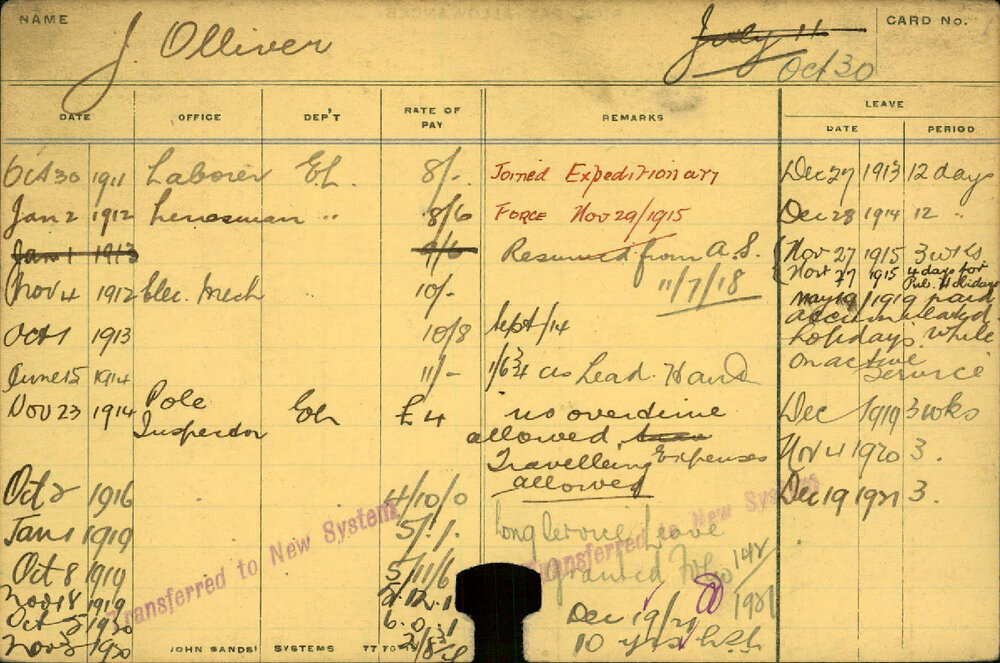 NAME J. Olliver July 11 CARD No.
Oct 30
LEAVE
DATE OFFICE DEP'T RATE OF PAY REMARKS DATE PERIOD
Oct 30 1911 Laborer El. 8/- Joined Expeditionary Dec 27 1913 12 days
Jan 2 1912 Linesman " 8/6 Force Nov 29/1915 Dec 28 1914 12 "
Jan 1 1913 9/6 Resumed from A.S. Nov 27 1915 3 wks
11/7/18 Nov 27 1915 4 days for Pub. Holidays
Nov 4 1912 Elec. Mech 10/- May 19/1919 paid
accumulated
Oct 1 1913 10/8 Sept/14 holidays while
on active
service
June 15 1914 11/- 1/6¾ as Lead. Hand
Nov 23 1914 Pole Inspector El. £4 no overtime Dec 1919 3 wks
allowed Nov 4 1920 3.
Travelling Expenses
allowed Dec 19 1921 3.
Oct 2 1916 4/10/0
Jan 1 1919 5/./. Long Service Leave
Oct 8 1919 5/11/6 Granted 148/1921
Nov 18 1919 5.12.1 Dec 19/21
Oct 1920 6.0.1 10 yrs
Nov 3 1920
Transferred to New System
Transferred to New System
JOHN SANDS' SYSTEMS 77